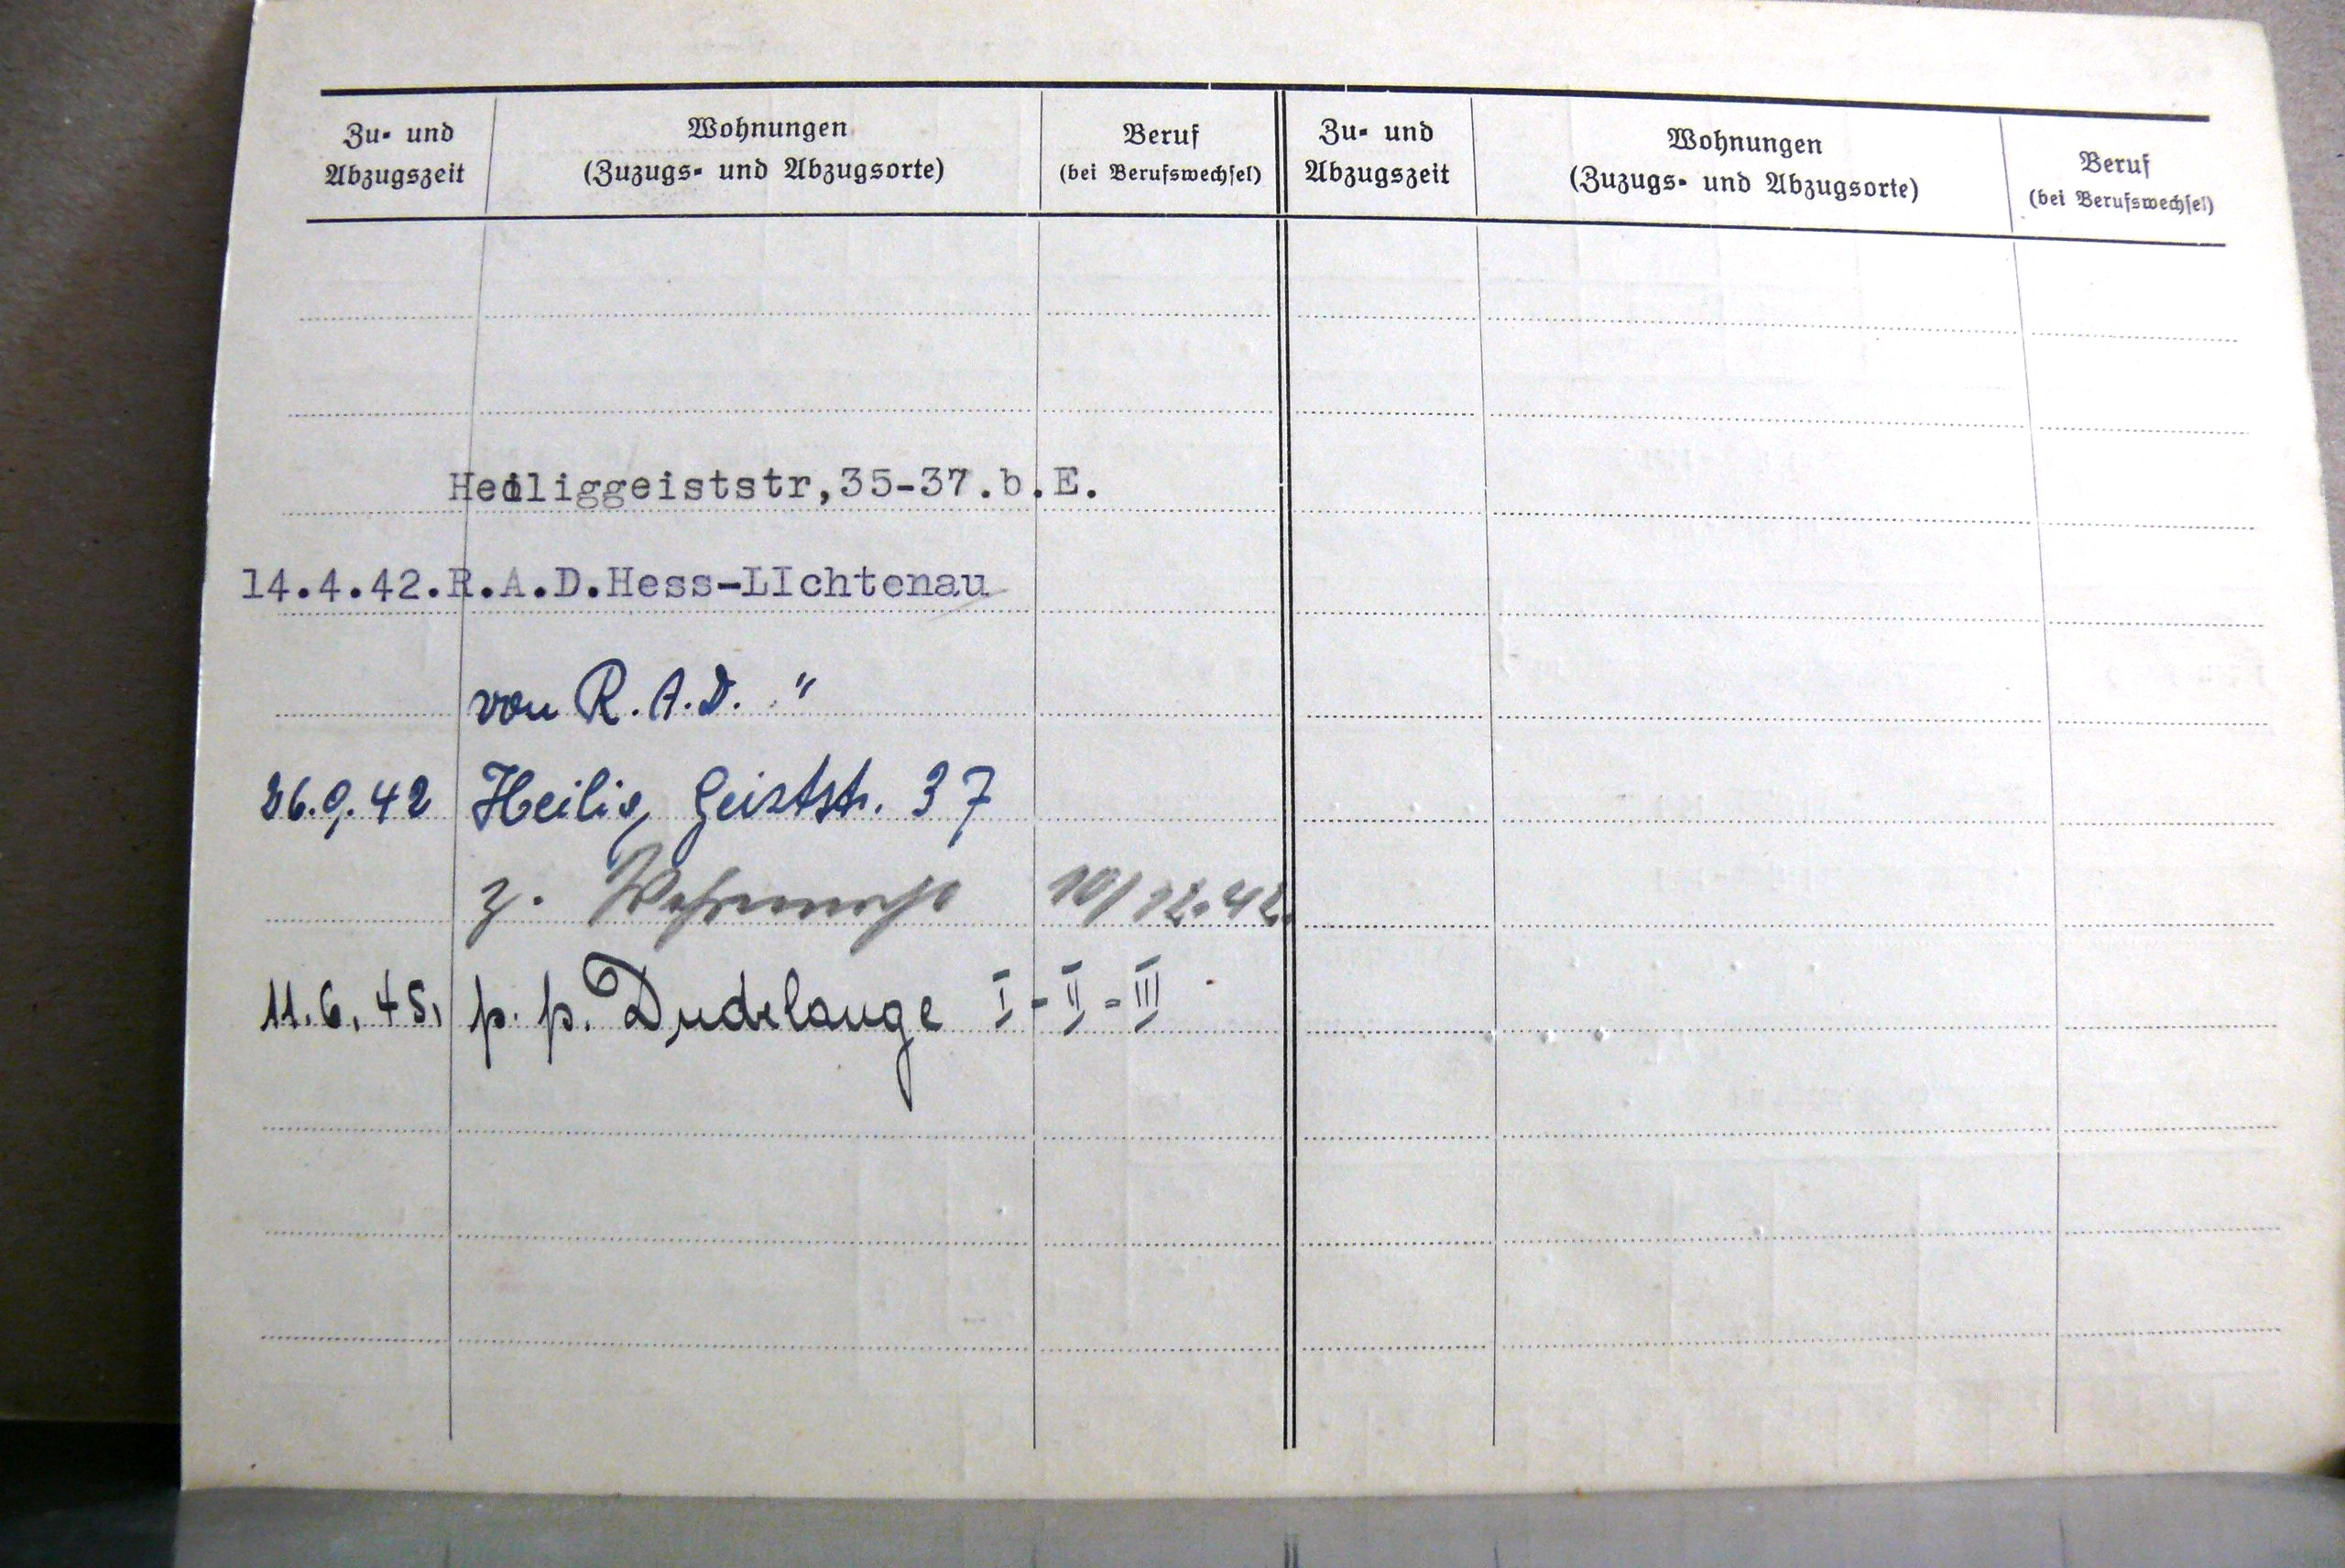 Zu- und Abzugszeit
Wohnungen
(Zuzugs- und Abzugsorte)
Beruf
(bei Berufswechsel)
Zu- und Abzugszeit
Wohnungen
(Zuzugs- und Abzugsorte)
Beruf
(bei Berufswechsel)
Heiliggeiststr,35-37.b.E.
14.4.42.R.A.D.Hess-LIchtenau
von R.A.D. "
26.9.42 Heilig Geiststr. 37
z. Wehrmacht 10/12.42.
11.6.45, p. p. Dudelange I - II - III